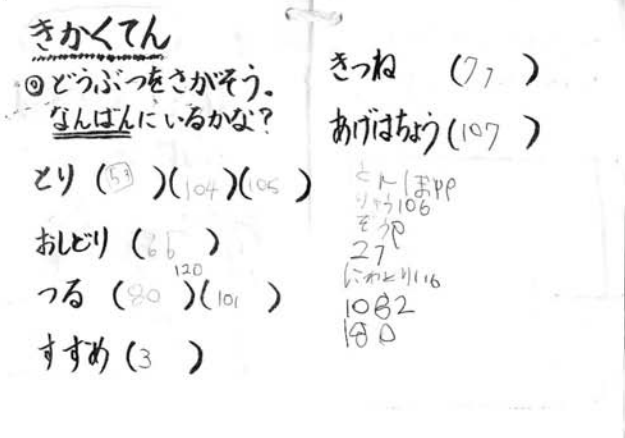 きかくてん
◎どうぶつをさがそう。
なんばんにいるかな?
とり (53)(104)(105)
おしどり (66)
120
つる (80)(101)
すずめ (3)
きつね (77)
あげはちょう(107)
りゅう106
27
にわとり116
1082
180